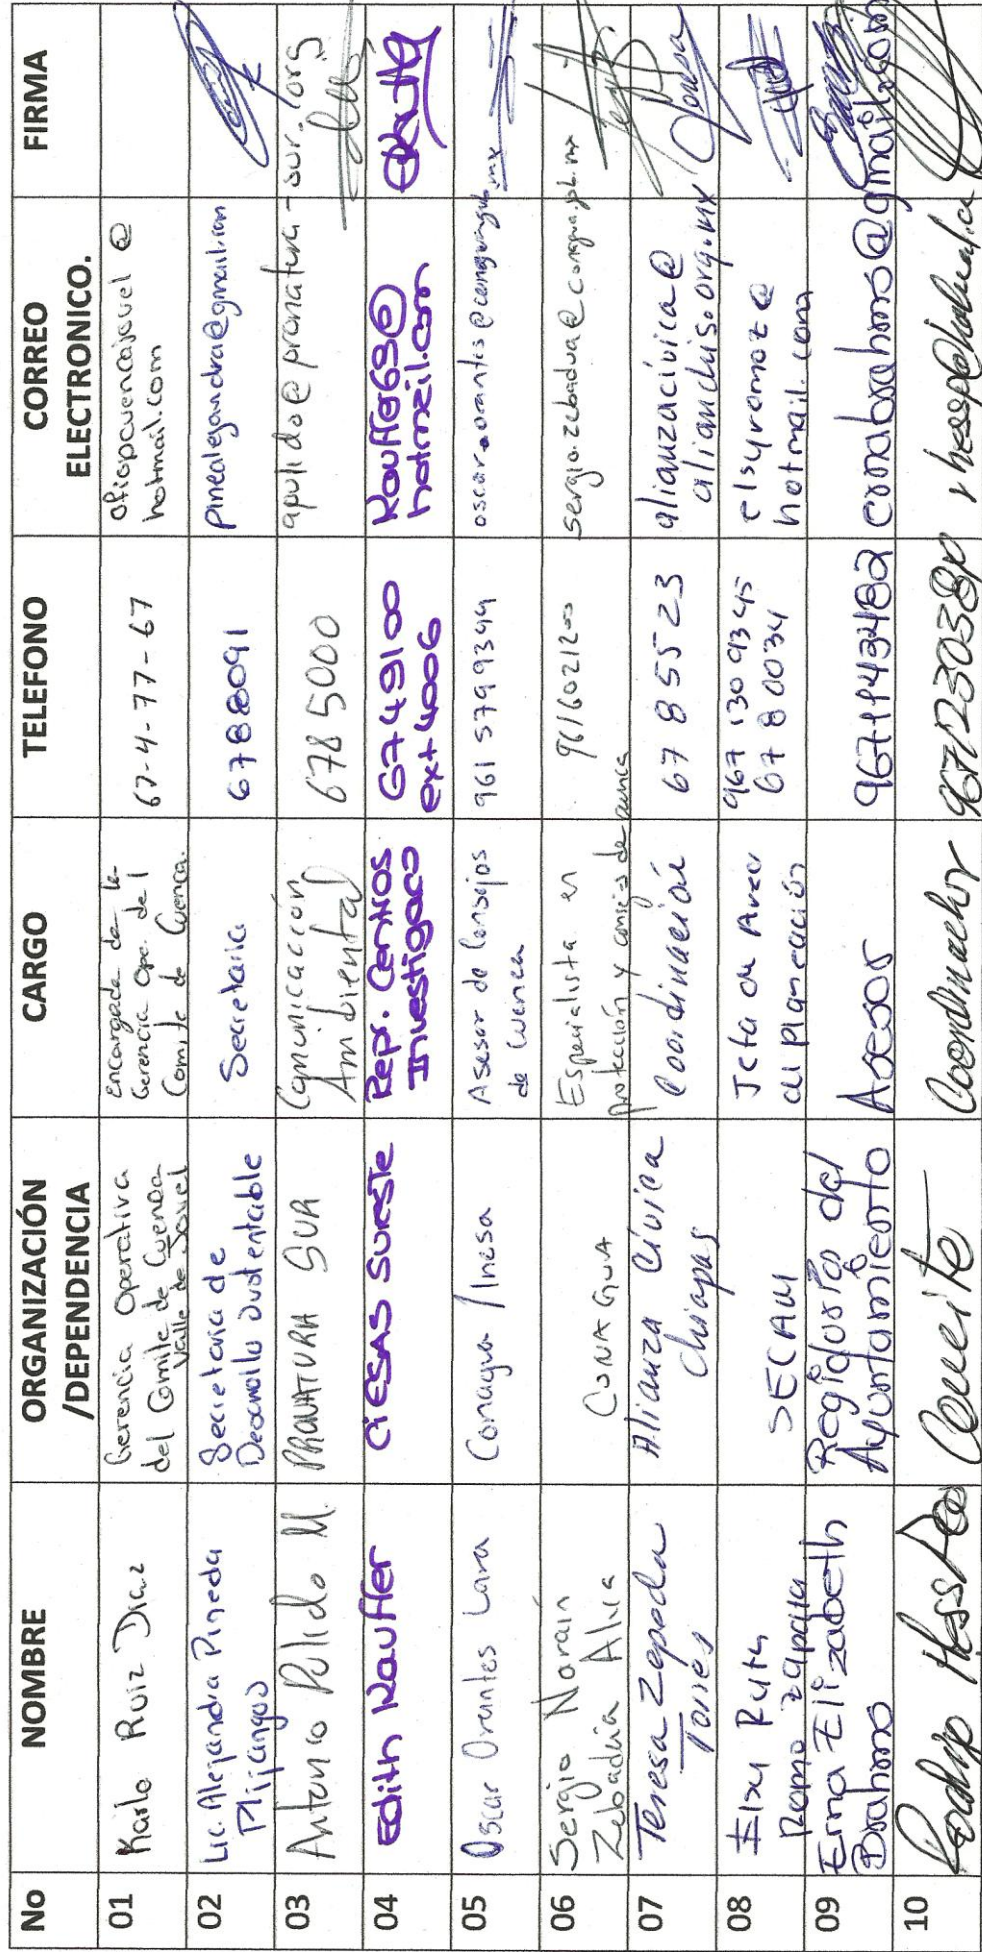 No NOMBRE ORGANIZACIÓN /DEPENDENCIA CARGO TELEFONO CORREO ELECTRONICO. FIRMA
01 Karla Ruiz Diaz
Gerencia Operativa
del Comite de Cuenca
Valle de Jovel
Encargada de la
Gerencia Ope. del
Comite de Cuenca.
67-4-77-67
hotmail.com
02 Lic. Alejandra Pineda
Secretaria de
Desarrollo Sustentable
Secretaria
6788091
pinealejandra@gmail.com
03 Antonio Pulido M.
PRONATURA SUR
Comunicación
Ambiental
678 5000
apulido@pronatura-sur.org
04 Edith Kauffer
CIESAS SURESTE
Repr. Centros
Investigacs
6749100
ext 4006
Kauffer69@
hotmail.com
05 Oscar Orantes Lara
Conagua / Inesa
Asesor de Consejos
de Cuenca
961 5799344
06 Sergio Norain
Zebadua Alva
CONAGUA
Especialista en
protección y consejos de cuenca
9616021200
07 Teresa Zepeda
Torres
Alianza Cívica
Chiapas
Coordinación
67 8 55 23
alianzacivica@
08 Elsy Ruth
SECAM
Jefa de Area
de Planeación
967 130 9345
67 8 0034
elsyromoz@
hotmail.com
09 Erna Elizabeth
Brahms
Regiduría del
Ayuntamiento
Asesor
9671143482
10
Coordinador